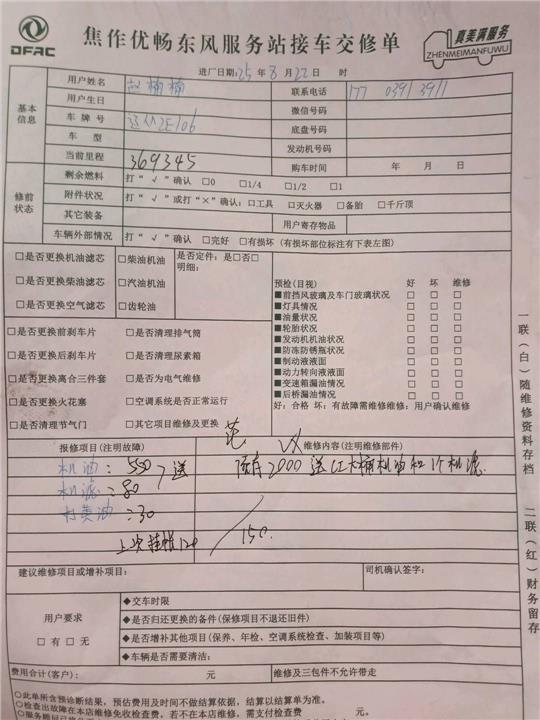 DFAC
焦作优畅东风服务站接车交修单
真美满服务
ZHENMEIMANFUWU
进厂日期:25 年 8 月 22 日 时
基本信息
用户姓名 赵楠楠 联系电话 177 0391 3911
用户生日 微信号码
车牌号 2E106 底盘号码
车型 发动机号码
当前里程 369345 购车时间 年 月 日
修前状态
剩余燃料 打“√”确认 □0 □1/4 □1/2 □1
附件状况 打“√”或打“×”确认:□工具 □灭火器 □备胎 □千斤顶
其它装备 用户寄存物品
车辆外部情况 打“√”确认 □完好 □有损坏(有损坏部位标注有下表左图)
□是否更换机油滤芯 □柴油机油 是否定件:是□否□
明细:
□是否更换柴油滤芯 □汽油机油
□是否更换空气滤芯 □齿轮油
□是否更换前刹车片 □是否清理排气筒
□是否更换后刹车片 □是否清理尿素箱
□是否更换离合三件套 □是否为电气维修
□是否更换火花塞 □空调系统是否正常运行
□是否清理节气门 □其它项目维修及更换
预检(目视) 好 坏 维修
■前挡风玻璃及车门玻璃状况 □ □ □
■灯具情况 □ □ □
■油量状况 □ □ □
■轮胎状况 □ □ □
■发动机机油状况 □ □ □
■防冻防锈瓶状况 □ □ □
■制动液液面 □ □ □
■动力转向液液面 □ □ □
■变速箱漏油情况 □ □ □
■后桥漏油情况 □ □ □
好:合格 坏:有故障需维修维修:用户确认维修
报修项目(注明故障) 维修内容(注明维修部件)
机油:550 送 预存2000送 大桶机油和 个机滤.
机滤:80
打黄油:30
上次挂帐120 150.
建议维修项目或增补项目: 司机确认签字:
用户要求
□有 □无
◆交车时限
◆是否归还更换的备件(保修项目不退还旧件)
◆是否增补其他项目(保养、年检、空调系统检查、加装项目等)
◆车辆是否需要清洁:
费用合计(客户): 元 维修及三包件不允许带走
○此单所含预诊断结果,预估费用及时间不做结算依据,结算以结算单为准。
○检查出故障在本店维修免收检查费,若不在本店维修,需支付检查费 元。
一联(白)随维修资料存档
二联(红)财务留存